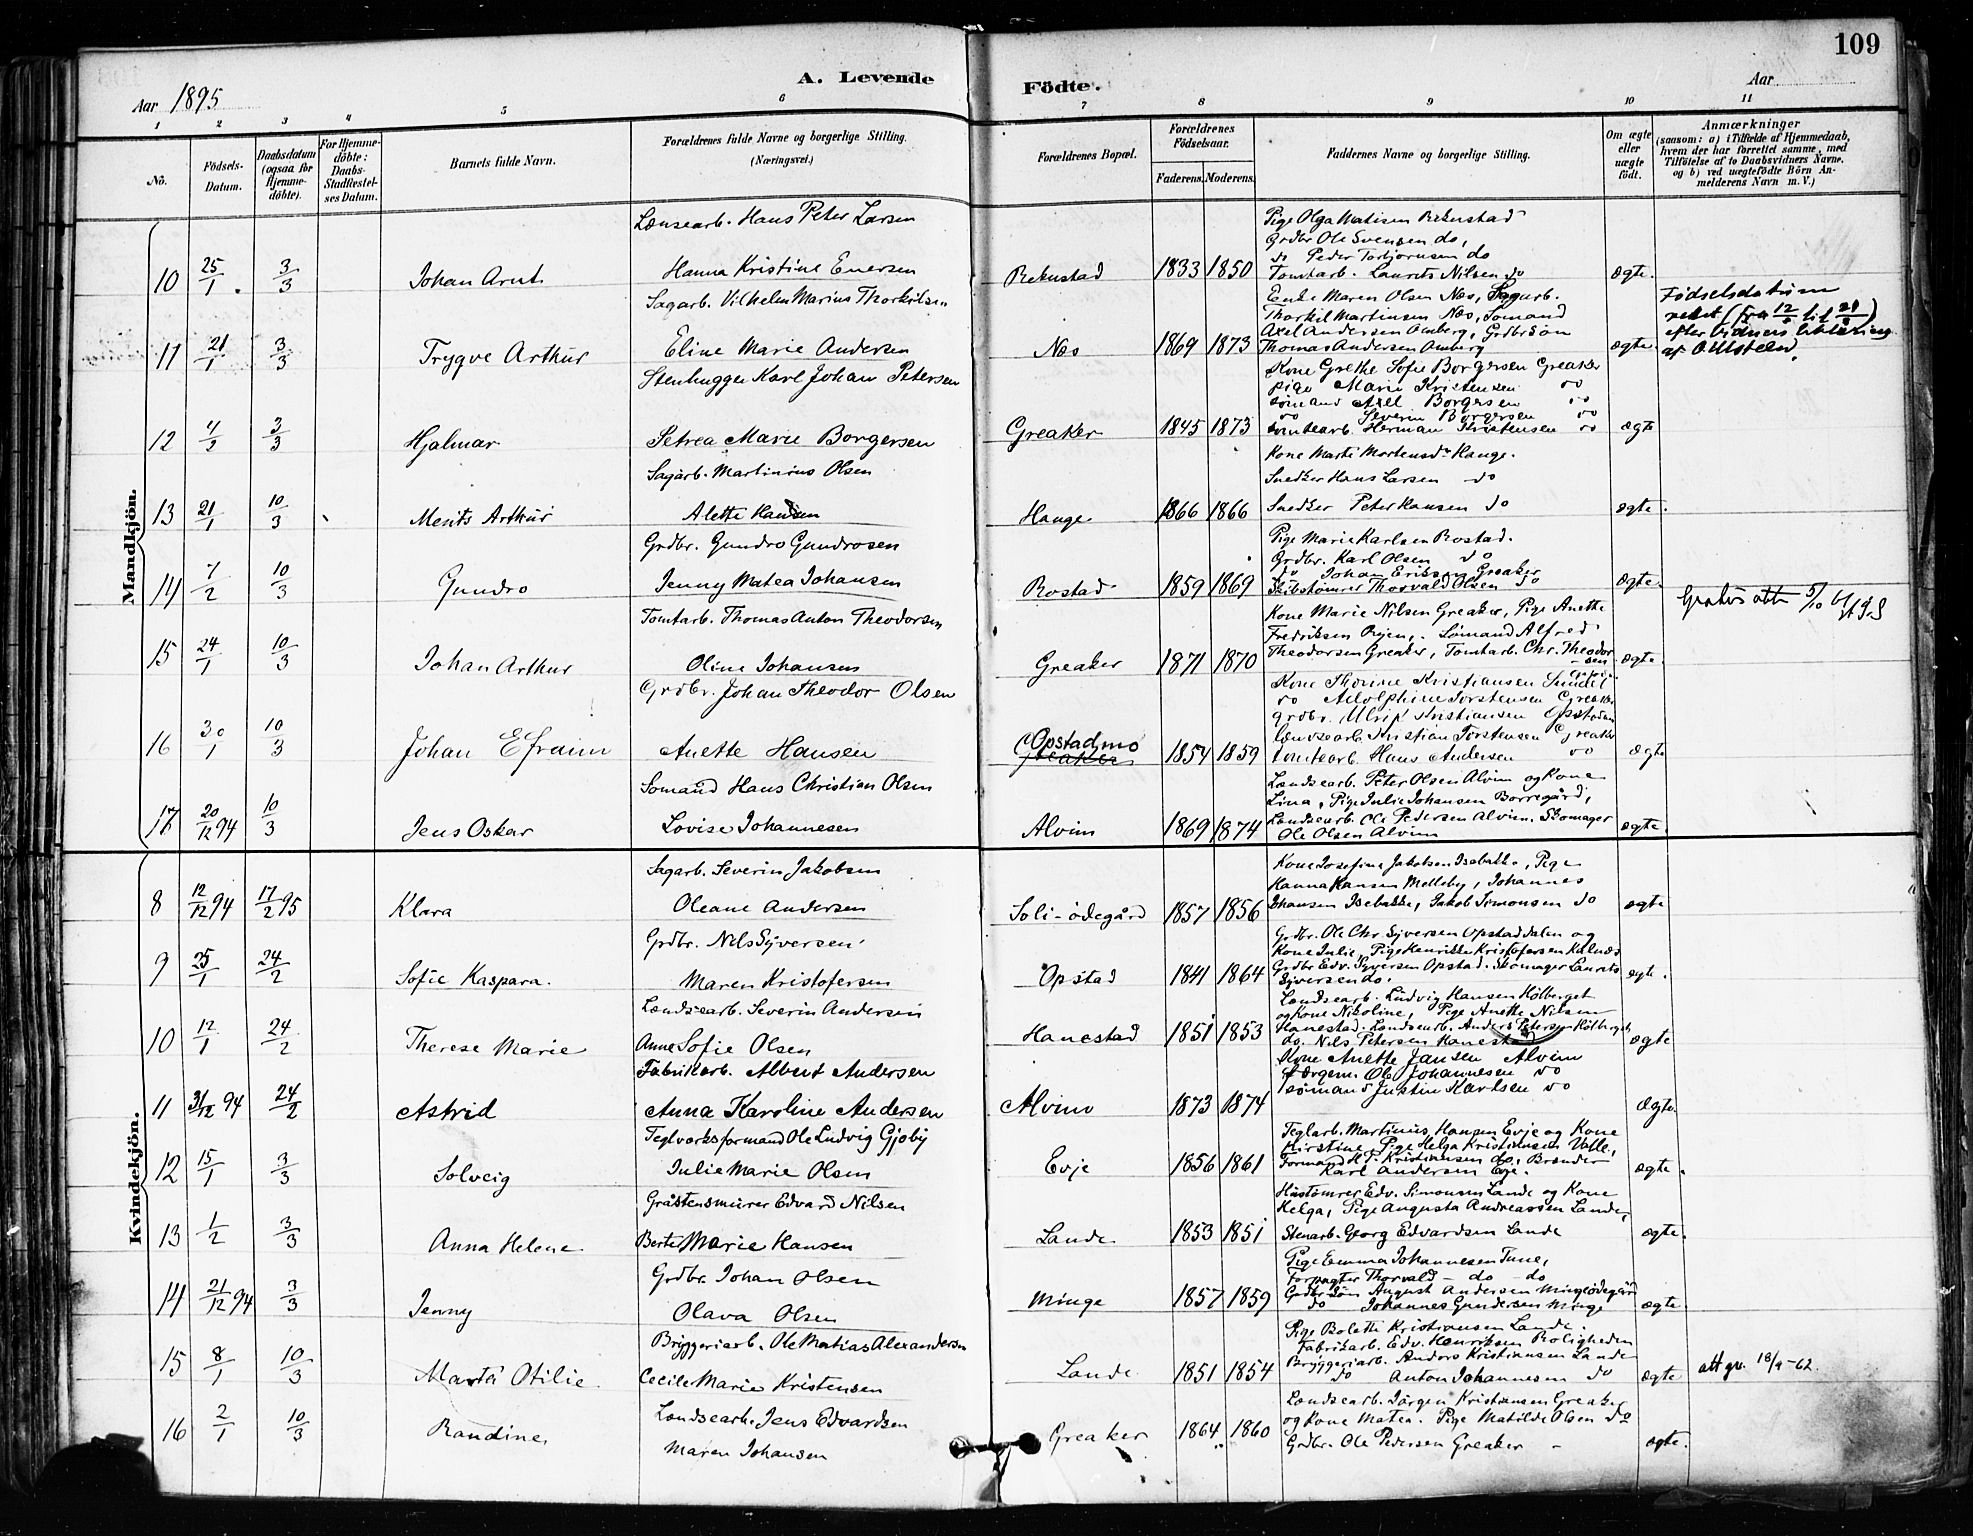 109
A. Levende
Födte.
Aar 1895
Aar
1 2 3 4 5 6 7 8 9 10 11
No.
Födsels-Datum.
Daabsdatum (ogsaa for Hjemmedöbte).
For Hjemmedöbte: Daabs-Stadfæstelses Datum.
Barnets fulde Navn.
Forældrenes fulde Navne og borgerlige Stilling. (Næringsvei.)
Forældrenes Bopæl.
Forældrenes Födselsaar.
Faderens. Moderens.
Faddernes Navne og borgerlige Stilling.
Om ægte eller uægte födt.
Anmærkninger
(saasom: a) i Tilfælde af Hjemmedaab, hvem der har forrettet samme, med Tilföielse af to Daabsvidners Navne. og b) ved uægtefödte Börn Anmelderens Navn m. V.)
Mandkjön.
Lænsearb. Hans Peter Larsen
Pige Olga Matisen Rekustad
Grdbr Ole Svensen do,
do Peder Torbjørnsen do
10 25/1 3/3 Johan Arnt Hanna Kristine Enersen Rekustad 1833 1850 Tomtarb. Laurits Nilsen do ægte.
Sagarb. Vilhelm Marius Thorkilsen
Enke Maren Olsen Næs, Sagarb.
Thorkil Martinsen Næs, Sømand
Axel Andersen Omberg, Grdbr Søn
11 21/1 3/3 Trygve Arthur Eline Marie Andersen Næs 1869 1873 Thomas Andersen Omberg ægte.
Fødselsdatum
rettet (fra 12/1 til 21/1)
efter
af
Stenhugger Karl Johan Petersen
Kone Grethe Sofie Borgersen Greaker
Pige Marie Kristensen do
Sømand Axel Borgersen do
do Severin Borgersen do
12 4/2 3/3 Hjalmar Petrea Marie Borgersen Greaker 1845 1873 Tomtearb. Herman Kristensen do ægte
Sagarb. Martinius Olsen
Kone Marti Mortensdr Hauge.
Snedker Hans Larsen do
13 21/1 10/3 Merits Arthur Alette Hansen Hauge 1866 1866 Snedker Peter Hansen do ægte.
Grdbr. Gundro Gundrosen
Pige Marie Karlsen Rostad.
Grdbr. Karl Olsen do
do Johan Eriksen Greaker
14 7/2 10/3 Gundro Jenny Matea Johansen Rostad 1859 1869 Skibstømrer Thorvald Olsen do ægte.
Tomtarb. Thomas Anton Theodorsen
Kone Marie Nilsen Greaker, Pige Anette
Fredriksen Opjen, Sømand Alfred
15 24/1 10/3 Johan Arthur Oline Johansen Greaker 1871 1870 Theodorsen Greaker, Tomtarb. Chr. Theodorsen ægte
Grdbr. Johan Theodor Olsen
Kone Thorine Kristiansen
do Adolphine Torstensen Greaker
Grdbr. Ulrik Kristiansen Opstadm
Lændsearb Kristian Torstensen Greaker
16 30/1 10/3 Johan Efraim Anette Hansen Opstadmo Greaker 1854 1859 Tomtearb. Hans Andersen do ægte
Sømand Hans Christian Olsen
Lændsearb. Peter Olsen Alvim og Kone
Lina, Pige Julie Johansen Borregård,
Lændsearb. Ole Pedersen Alvim. Skomager
17 20/12 94 10/3 Jens Oskar Lovise Johannesen Alvim 1869 1874 Ole Olsen Alvim ægte.
Kvindekjön.
Sagarb. Severin Jakobsen
Kone Josefine Jakobsen Isebakke, Pige
Hanna Hansen Melleby, Johannes
8 12/12 94 17/2 95 Klara Oleane Andersen Soli-ødegård 1857 1856 Johansen Isebakke, Jakob Simonsen do ægte
Grdbr. Nils Syversen
Grdbr. Ole Chr. Syversen Opstad dalen og
Kone Julie, Pige Henrikke Kristofersen Kalnæs
9 25/1 24/2 Sofie Kaspara. Maren Kristofersen Opstad 1841 1864 Grdbr Edv. Syversen Opstad. Skomager Laurits Syversen do. ægte.
Lændsearb. Severin Andersen
Lændsearb. Ludvig Hansen Hølberget
og Kone Nikoline, Pige Anette Nilsen
Hanestad. Lændsearb. Anders Petersen Kölberget
10 12/1 24/2 Therese Marie Anne Sofie Olsen Hanestad 1851 1853 do. Nils Petersen Hanestad ægte
Fabrikarb. Albert Andersen
Kone Anette Jansen Alvim
Færgem. Ole Johannesen do
Sømand Justin Karlsen do
11 31/12 94 24/2 Astrid Anna Karoline Andersen Alvim 1873 1874 Ægte.
Teglværksformand Ole Ludvig Gjøby
Teglarb. Martinius Hansen Evje og Kone
Kirstine, Pige Helga Kristiansen Valle,
Formand H.P. Kristiansen do, Brænder
12 15/1 3/3 Solveig Julie Marie Olsen Evje 1856 1861 Karl Andersen Evje. ægte.
Gråstensmurer Edvard Nilsen
Hustømrer Edv. Simonsen Lande og Kone
Helga, Pige Augusta Andreassen Lande,
13 1/2 3/3 Anna Helene Berte Marie Hansen Lande 1853 1851 Stenarb. Georg Edvardsen Lande ægte.
Grdbr. Johan Olsen
Pige Emma Johannesen Tune,
Forpagter Thorvald - do - do
Grdbr Søn August Andersen Mingeødegård
14 21/12 94 3/3 Jenny Olava Olsen Minge 1857 1859 do Johannes Gundersen Minge ægte.
Bryggeriarb. Ole Matias Alexandersen
Pige Bolette Kristiansen Lande.
Fabrikarb. Edv. Henriksen Roligheden
Bryggeriarb. Anders Kristiansen Lande
15 8/1 10/3 Marta Otilie Cecilie Marie Kristensen Lande 1851 1854 do Anton Johannesen do ægte att gr. 18/9-62.
Lændsearb. Jens Edvardsen
Lændsearb. Jörgen Kristiansen Greaker
og Kone Matea. Pige Matilde Olsen do
16 2/1 10/3 Randine Maren Johansen Greaker 1864 1860 Grdbr. Ole Pedersen Greaker - ægte.